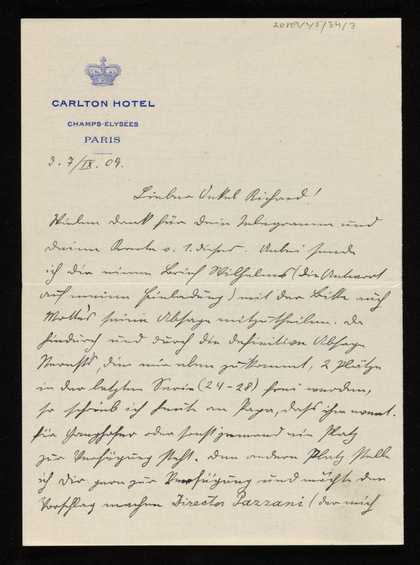 CARLTON HOTEL
CHAMPS-ELYSÉES
PARIS
3. 7/IX. 09.
Lieber Onkel Richard!
Vielen Dank für dein Telegramm und
deine Karte v. 1. dieses. Anbei sende
ich dir einen Brief Wilhelms (die Antwort
auf meine Einladung) mit der Bitte auch
seine Absage mitzutheilen. Da
hiedurch und durch die definitive Absage
die mir eben zukommt, 2 Plätze
in der letzten Serie (24-28) frei werden,
so schrieb ich heute an Papa, dass ihm
für oder sonst jemand ein Platz
zur Verfügung steht. Den andern Platz stelle
ich Dir gern zur Verfügung und möchte den
Vorschlag machen Director Pazzani (der mich